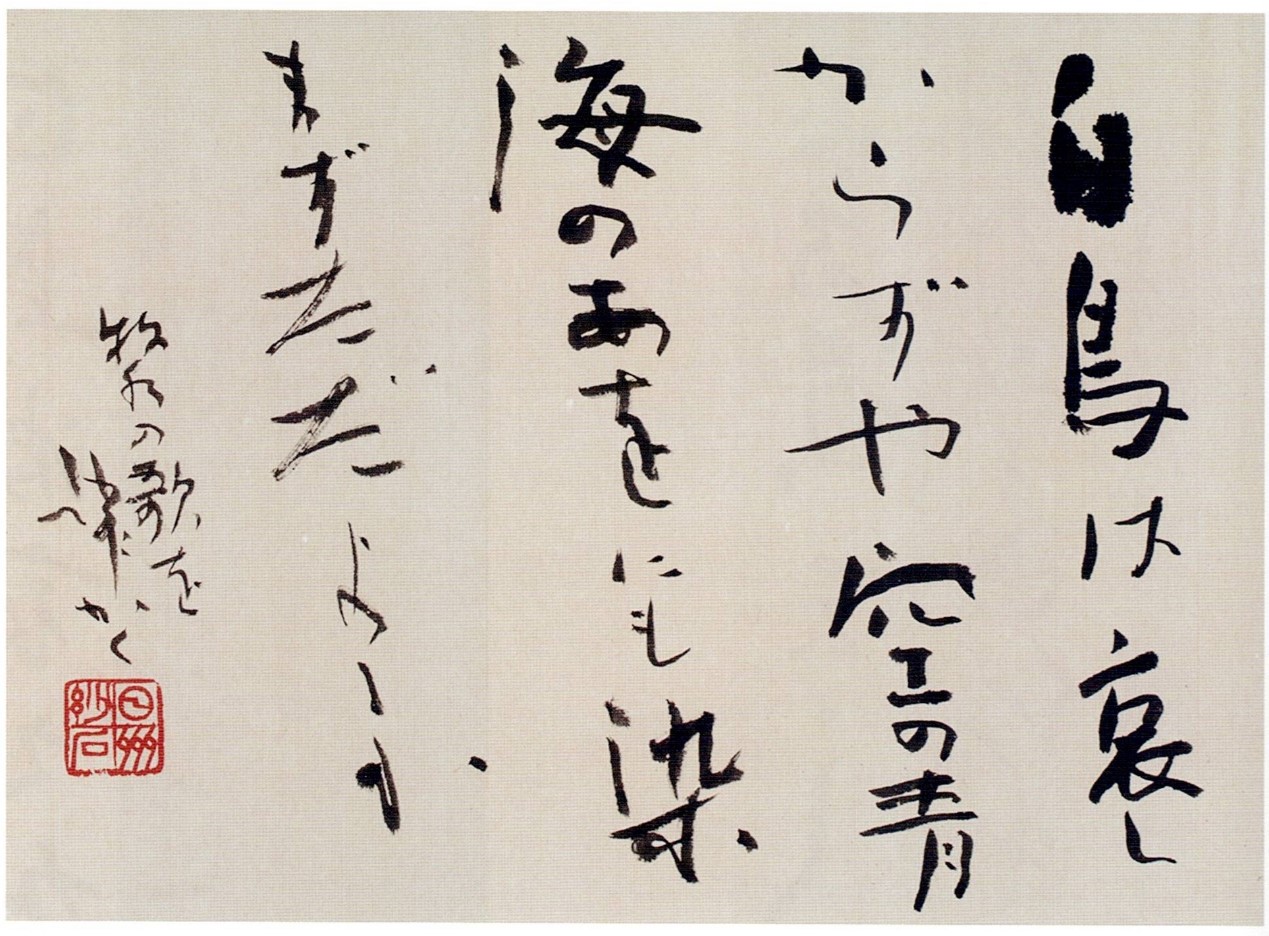 白鳥は哀し
からずや空の青
海のあをにも染
まずただよふ
牧水の歌を
かく